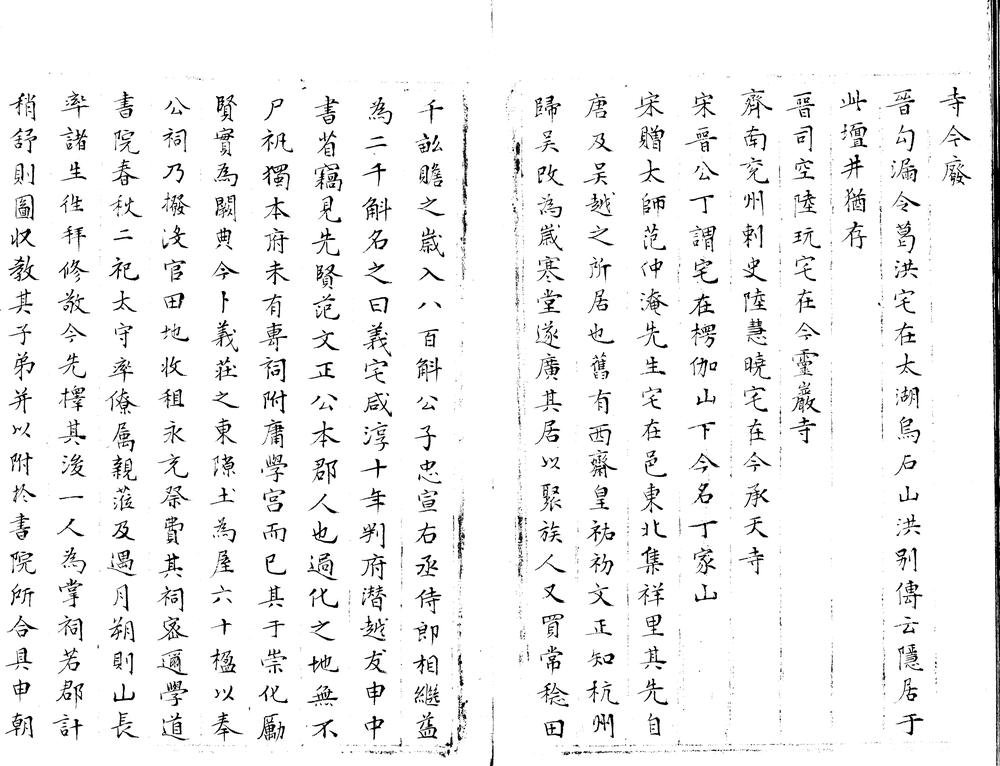 寺今廢
晉勾漏令葛洪宅在太湖烏石山洪别傳云隱居于
此壇井猶存
晉司空陸玩宅在今靈巖寺
齊南兖州刺史陸慧曉宅在今承天寺
宋晉公丁謂宅在楞伽山下今名丁家山
宋贈太師范仲淹先生宅在邑東北集祥里其先自
唐及吴越之所居也舊有西齋皇祐初文正知杭州
歸吴改為嵗寒堂遂廣其居以聚族人又買常稔田
千畝贍之嵗入八百斛公子忠宣右丞侍郎相繼益
為二千斛名之曰義宅咸淳十年判府潜越友申中
書省竊見先賢范文正公本郡人也過化之地無不
尸祝獨本府未有專祠附庸學宫而已其于崇化勵
賢實為闕典今卜義莊之東隙土為屋六十楹以奉
公祠乃撥没官田地收租永充祭費其祠密邇學道
書院春秋二祀太守率僚属親蒞及遇月朔則山長
率諸生徃拜修敬今先擇其後一人為掌祠若郡計
稍舒則圖收教其子弟并以附於書院所合具申朝